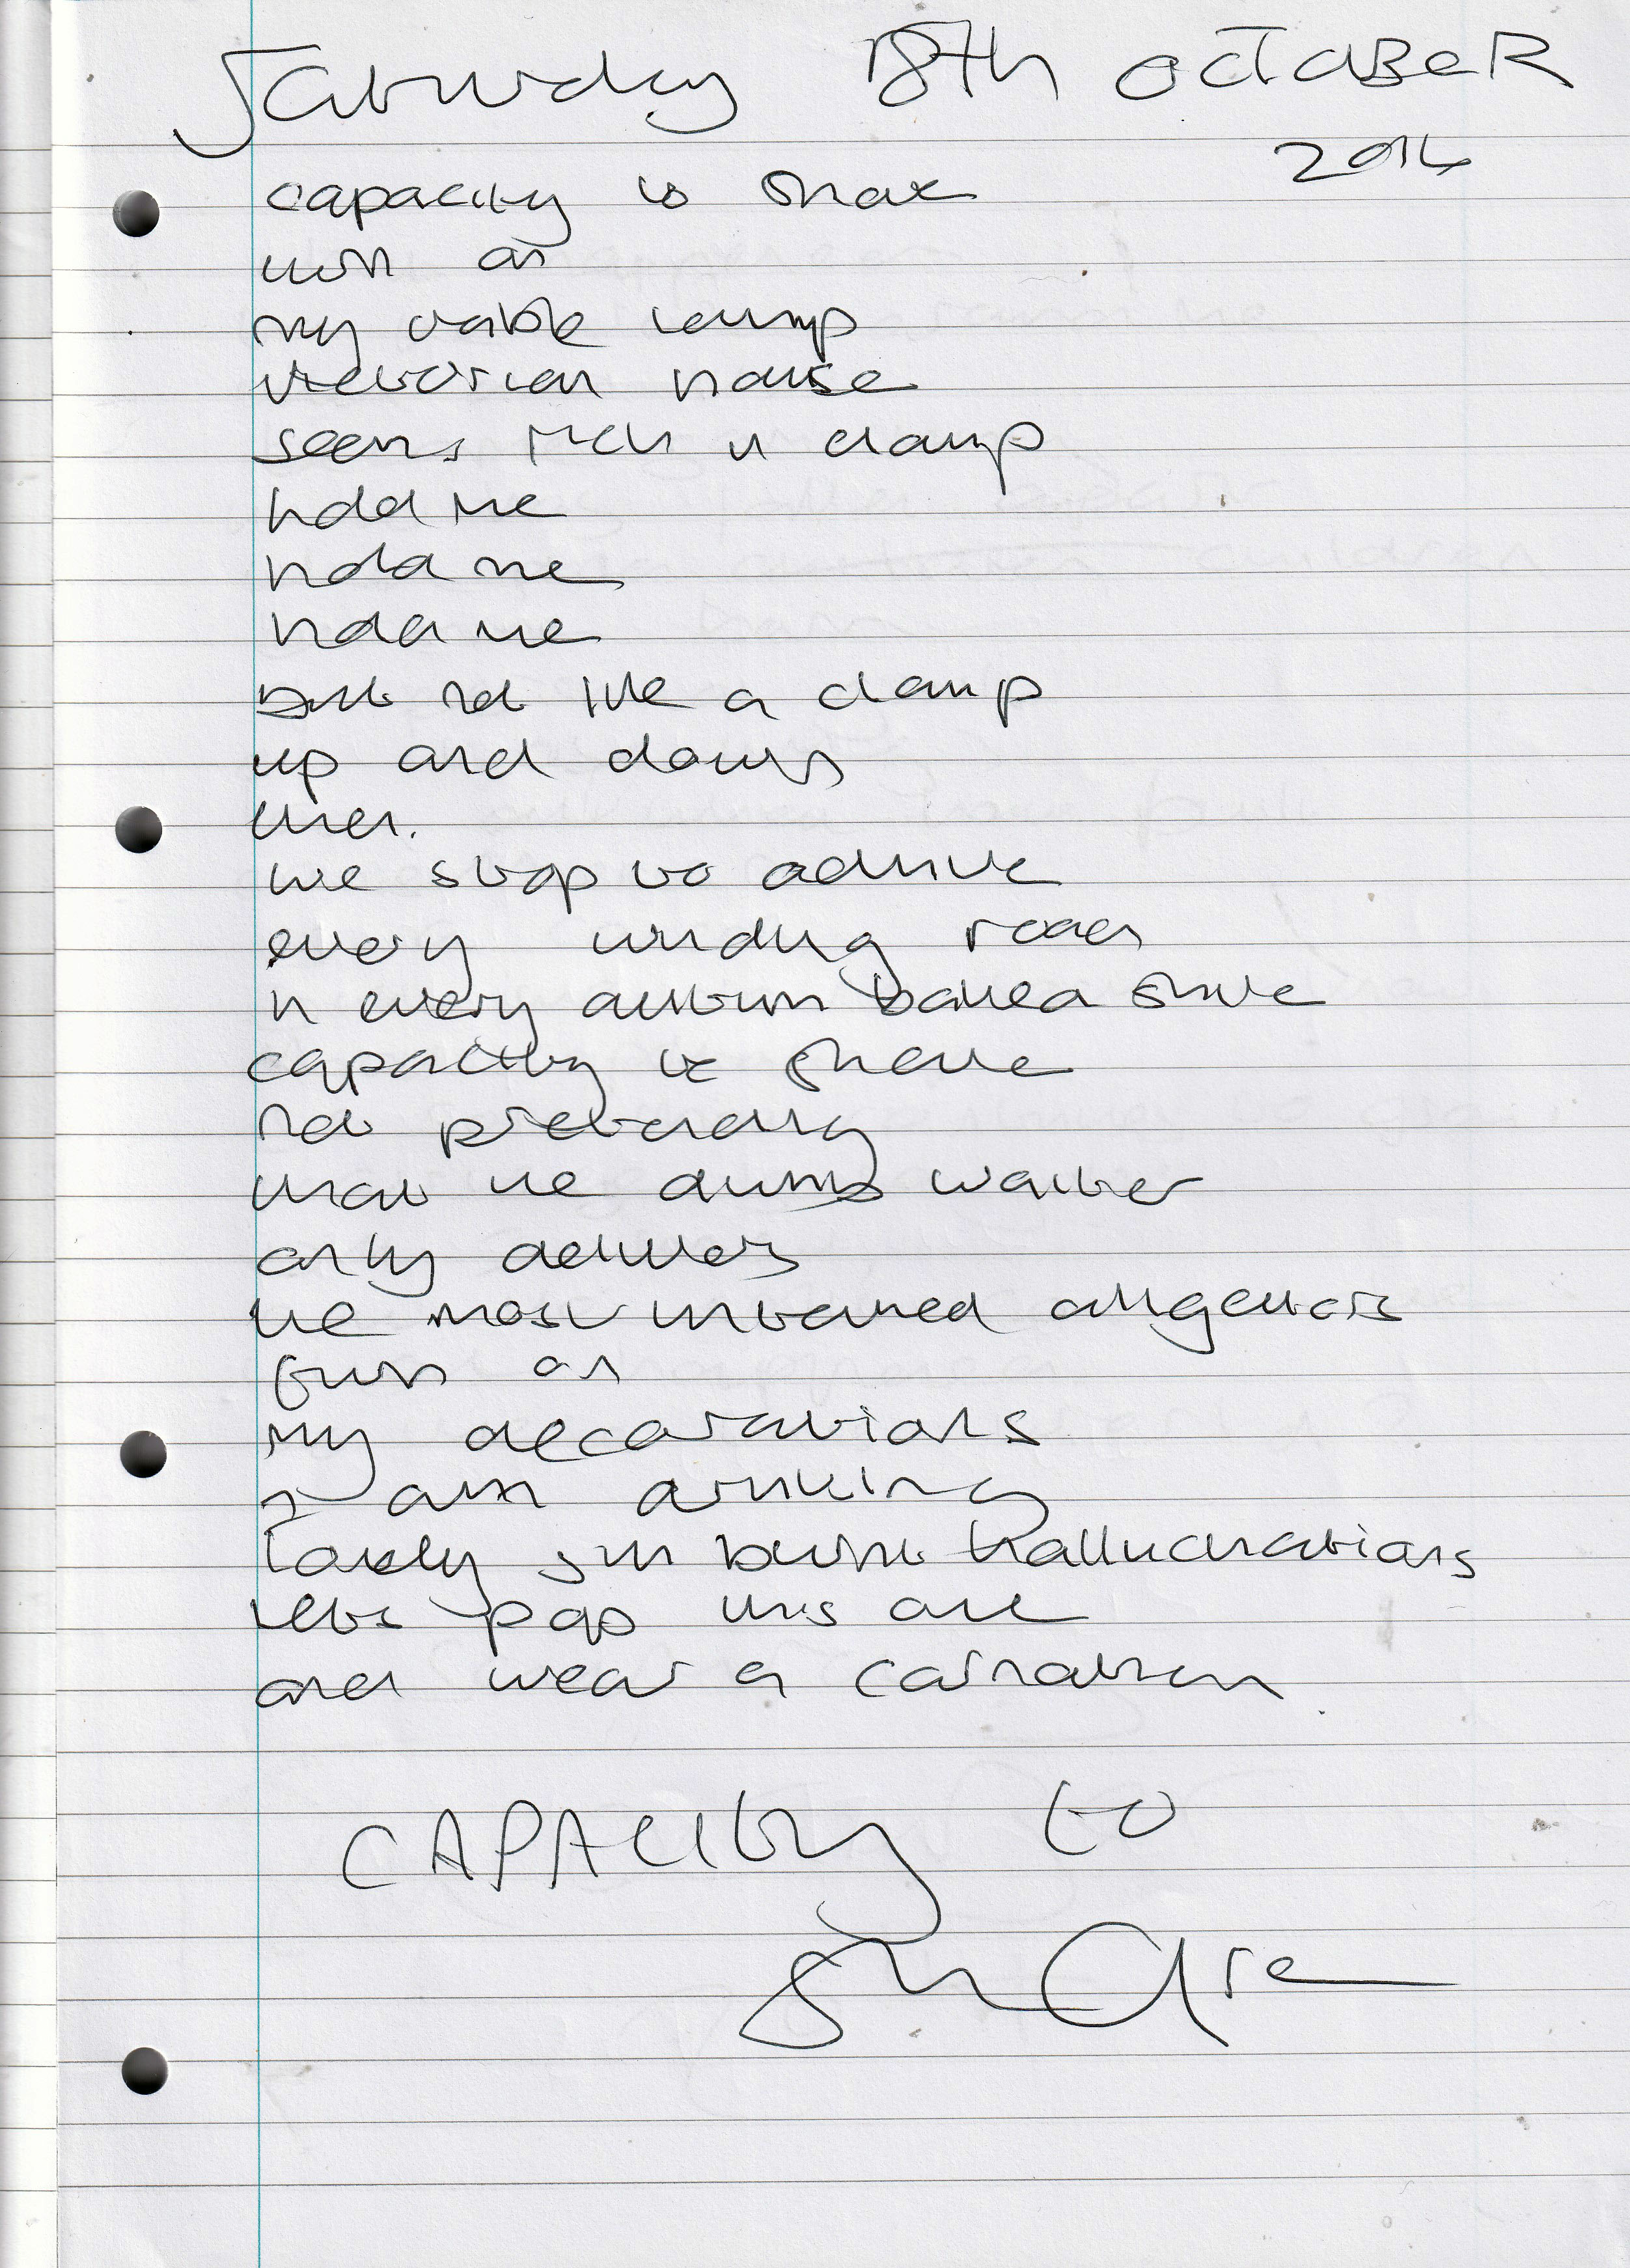 Saturday 18th OCTOBER
2014
capacity to share
turn on
my table lamp
victorian house
seems rich in damp
hold me
hold me
hold me
but not like a clamp
up and down
then.
we stop to admire
every winding road
in every autumn shire
capacity to share
not pretending
that the dumb waiter
only delivers
the most untamed alligators
turn on
my decorations
I am drinking
lovely sun burnt hallucinations
lets pop this one
and wear a carnation
CAPACITY to
share